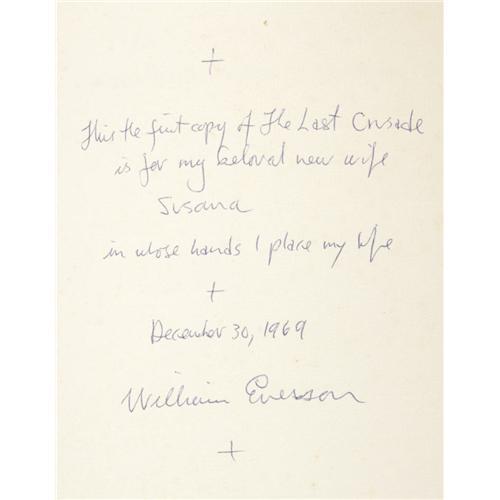 +
This the first copy of The Last Crusade
is for my beloved new wife
Susana
in whose hands I place my life
+
December 30, 1969
William Everson
+